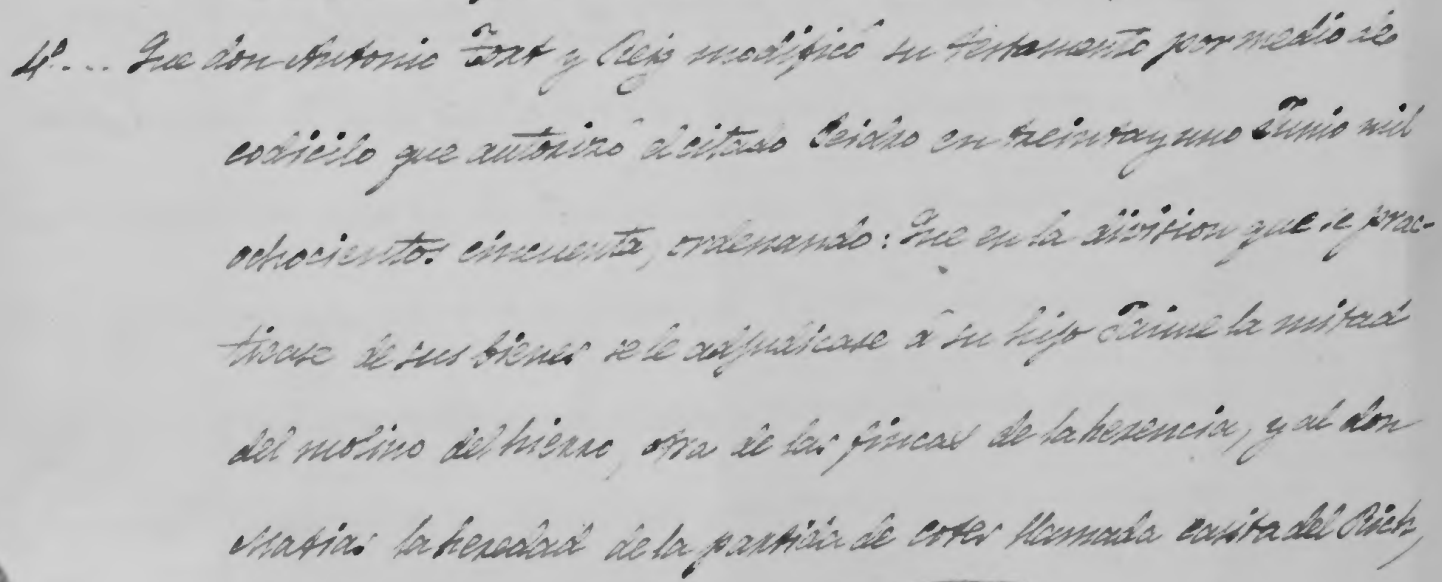 4º... Que don Antonio Font y Reig modificó su testamento por medio de
codicilo que autorizó el citado Isidro en treinta y uno Junio mil
ochocientos cincuenta, ordenando: Que en la division que se prac-
ticase de sus bienes se le adjudicase á su hijo Jaime la mitad
del molino del hierro, otra de las fincas de la herencia, y al don
Matias la heredad de la partida de cotes llamada casita del Rich,